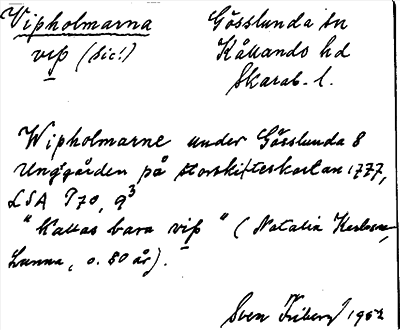 Vipholmarna Gösslunda sn
vip (sic!) Kållands hd
Skarab. l.
Wipholmarne under Gösslunda 8
Ungzgården på storskifteskartan 1777,
LSA P70, 9³
"Kallas bara vip" (Natalia Karlsson,
Lunna, o. 80 år).
Sven Friberg 1952